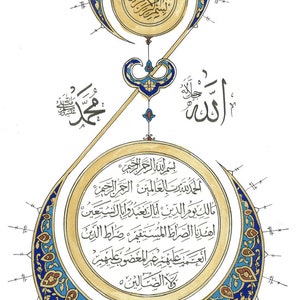 الله
جل جلاله
محمد
بسم الله الرحمن الرحيم
الحمد لله رب العالمين الرحمن الرحيم
مالك يوم الدين إياك نعبد وإياك نستعين
اهدنا الصراط المستقيم صراط الذين
أنعمت عليهم غير المغضوب عليهم
ولا الضالين